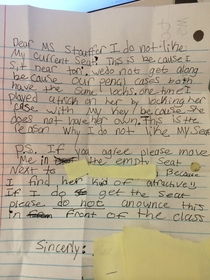 Dear MS Stauffer I do not like
My current seat! This is because I
sit near tori. we do not get along
because our pencil cases both
have the same locks. one time I
played a trick on her by locking her
case with my key because she
does not have her own. This is the
reason why I do not like my seat
P.S. If you agree please move
Me in the empty seat
Next to because
I find her kind of attractive!!
If I do get the seat
please do not anownce this
in front of the class
Sincerly: